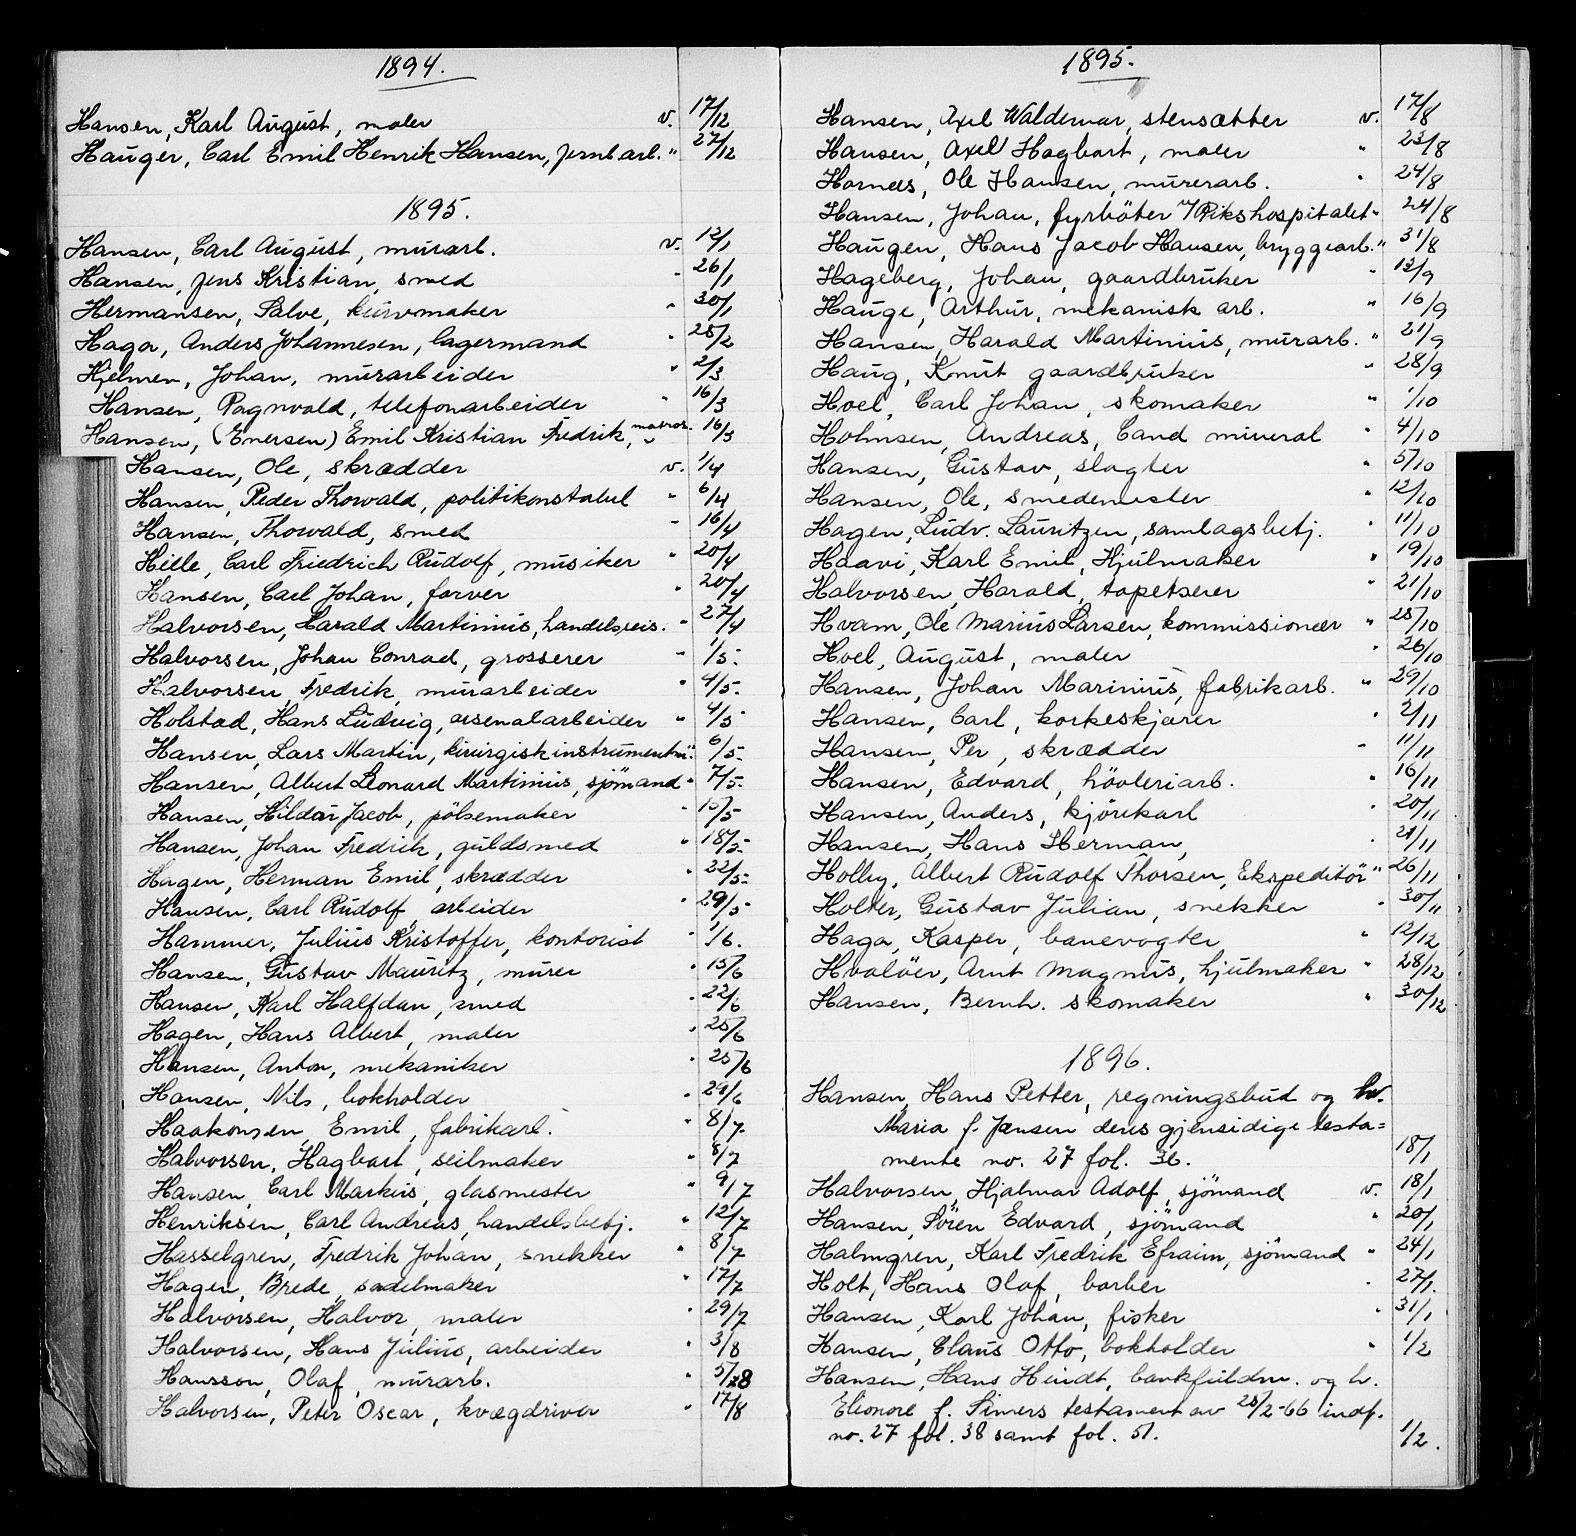 1894.
Hansen, Karl August, maler v. 17/12
Hauger, Carl Emil Henrik Hansen, jernb arb. " 27/12
1895.
Hansen, Carl August, murarb. v. 12/1
Hansen, Jens Kristian, smed " 26/1
Hermansen, Salve, kurvmaker " 30/1
Haga, Anders Johannesen, lagermand " 25/2
Hjelmen, Johan, murarbeider " 2/3
Hansen, Ragnvald, telefonarbeider " 16/3
Hansen, (Enersen) Emil Kristian Fredrik, matros. " 16/3
Hansen, Ole, skrædder v. 1/4
Hansen, Peder Thorvald, politikonstabel " 6/4
Hansen, Thorvald, smed " 16/4
Hille, Carl Friedrich Rudolf, musiker " 20/4
Hansen, Carl Johan, farver " 20/4
Halvorsen, Harald Martinius, handelsreis. " 27/4
Halvorsen, Johan Conrad, grosserer " 1/5.
Halvorsen, Fredrik, murarbeider " 4/5.
Holstad, Hans Ludvig, arsenalarbeider " 4/5
Hansen, Lars Martin, kirurgisk instrumentm. " 6/5.
Hansen, Albert Leonard Martinius, sjömand " 7/5.
Hansen, Hildar Jacob, pölsemaker " 15/5
Hansen, Johan Fredrik, guldsmed " 18/5.
Hagen, Herman Emil, skrædder " 22/5.
Hansen, Carl Rudolf, arbeider " 29/5
Hammer, Julius Kristoffer, kontorist " 1/6.
Hansen, Gustav Mauritz, murer " 15/6
Hansen, Karl Halfdan, smed " 22/6
Hagen, Hans Albert, maler " 25/6
Hansen, Anton, mekaniker " 25/6
Hansen, Nils, bokholder " 29/6
Haakonsen, Emil, fabrikarb. " 8/7.
Halvorsen, Hagbart, seilmaker " 8/7
Hansen, Carl Markus, glasmester " 9/7
Henriksen, Carl Andreas, handelsbetj. " 12/7
Hasselgren, Fredrik Johan, snekker " 8/7
Hagen, Brede, sadelmaker " 17/7
Halvorsen, Halvor, maler " 29/7
Halvorsen, Hans Julius, arbeider " 3/8
Hansson, Olaf, murarb. " 5/8
Halvorsen, Peter Oscar, kvægdriver " 17/8
1895.
Hansen, Axel Waldemar, stensætter v. 17/8
Hansen, Axel Hagbart, maler " 23/8
Hornæs, Ole Hansen, murerarb. " 24/8
Hansen, Johan, fyrböter v/Rikshospitalet " 24/8
Haugen, Hans Jacob Hansen, bryggearb. " 31/8
Hageberg, Johan, gaardbruker " 12/9
Hauge, Arthur, mekanisk arb. " 16/9
Hansen, Harald Martinius, murarb. " 21/9
Haug, Knut gaardbruker " 28/9
Hoel, Carl Johan, skomaker " 1/10
Holmsen, Andreas, Cand mineral " 4/10
Hansen, Gustav, slagter " 5/10
Hansen, Ole, smedemester " 12/10
Hagen, Ludv. Lauritzen, samlagsbetj. " 11/10
Haavi, Karl Emil, Hjulmaker " 19/10
Halvorsen, Harald, tapetserer " 21/10
Hvam, Ole Marius Larsen, kommissionær " 25/10
Hoel, August, maler " 26/10
Hansen, Johan Marinius, fabrikarb. " 29/10
Hansen, Carl, korkeskjærer " 2/11
Hansen, Per, skrædder " 11/11
Hansen, Edvard, hövleriarb. " 16/11
Hansen, Anders, kjörekarl " 20/11
Hansen, Hans Herman, " 21/11
Holby, Albert Rudolf Thorsen, Ekspeditör " 26/11
Holter, Gustav Julian, snekker " 30/11
Haga, Kasper, banevogter " 12/12
Hvalöer, Arnt Magnus, hjulmaker " 28/12
Hansen, Bernh. skomaker " 30/12
1896.
Hansen, Hans Petter, regningsbud og hv.
Maria f. Jensen deres gjensidige testa=
mente no. 27 fol. 36. 18/1
Halvorsen, Hjalmar Adolf, sjömand v. 18/1
Hansen, Sören Edvard, sjömand " 20/1
Halmgren, Karl Fredrik Efraim, sjömand " 24/1
Holt, Hans Olaf, barber " 27/1.
Hansen, Karl Johan, fisker " 31/1
Hansen, Claus Otto, bokholder " 1/2
Hansen, Hans Heindt, bankfuldm. og h.
Elionore f. Simers testament av 28/2-66 indf.
no. 27 fol. 38 samt fol. 51. 1/2.